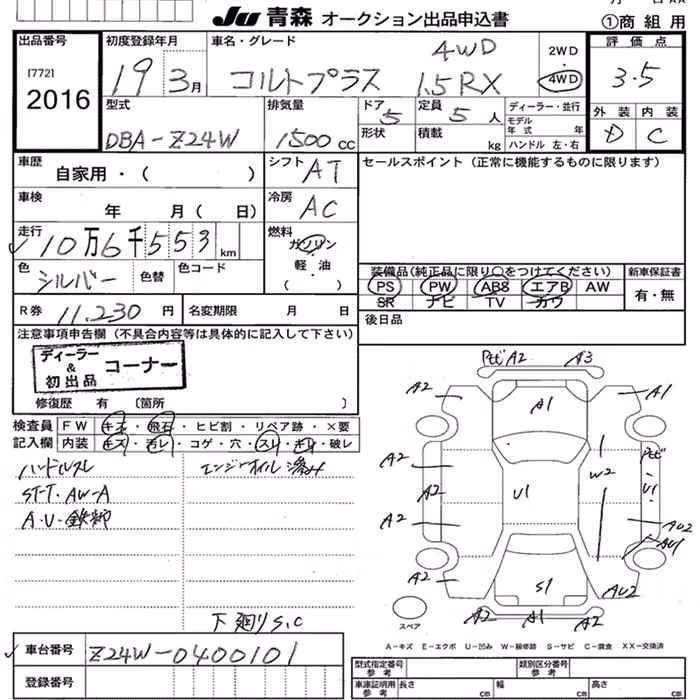 月 日 AA
Ju 青森 オークション出品申込書
①商組用
出品番号
[772]
2016
初度登録年月
19 3月
車名・グレード
4WD
コルトプラス 1.5RX
2WD
・
4WD
評価点
3.5
外装 内装
D C
型式
DBA-Z24W
排気量
1500 cc
ドア 5
形状
定員 5 人
積載 kg
ディーラー・並行
モデル年式 年
ハンドル 左・右
車歴
自家用・( )
シフト AT
セールスポイント (正常に機能するものに限ります)
車検
年 月( 日)
冷房 AC
走行
10万6千553km
燃料
ガソリン
軽・油
( )
色
シルバー
色替
色コード
装備品(純正品に限り○をつけてください)
新車保証書
PS PW ABS エアB AW
SR ナビ TV カワ
有・無
R券 11,230 円
名変期限 月 日
後日品
注意事項申告欄 (不具合内容等は具体的に記入して下さい)
ディーラー
&
初出品
コーナー
修復歴 有 〔箇所 〕
検査員
記入欄
FW キズ・飛石・ヒビ割・リペア跡・×要
内装 キズ・汚レ・コゲ・穴・スレ・キレ・破レ
ハンドルスレ
エンジンオイル滲み
ST-T・AW-A
A・U・鉄錆
下廻りS,C
A2 A2 A3 A1
A1
A2 W2
A2 U1 U1
A2 AU2
AU1
A2 S1 AU2
A2 A1 A2
スペア
A-キズ E-エクボ U-凹み W-補修跡 S-サビ C-腐食 XX-交換済
車台番号
Z24W-0400101
登録番号
型式指定番号
参考
類別区分番号
参考
車庫証明用
参考
長さ cm 幅 cm 高さ cm